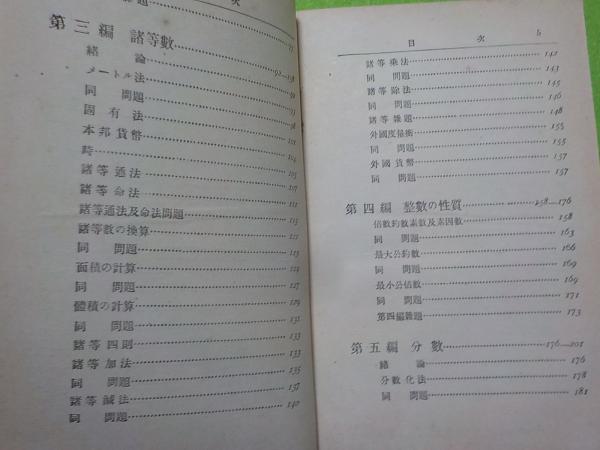 次
題
第三編 諸等數 92—158
緒論 92
メートル法
同 問題
固有法 98
本邦貨幣
時 105
諸等通法 107
諸等命法 111
諸等通法及命法問題 115
諸等數の換算 122
同 問題 123
面積の計算 124
同 問題 127
體積の計算 129
同 問題 131
諸等四則 133
諸等加法 133
同 問題 135
諸等減法 137
同 問題 140
目次 5
諸等乘法 142
同 問題 143
諸等除法 145
同 問題 146
諸等雜題 148
外國度量衡 155
同 問題 155
外國貨幣 157
同 問題 157
第四編 整數の性質 158—176
倍數約數素數及素因數 158
同 問題 163
最大公約數 166
同 問題 169
最小公倍數 169
同 問題 171
第四編雜題 173
第五編 分數 176—201
緒論 176
分數化法 178
同 問題 181